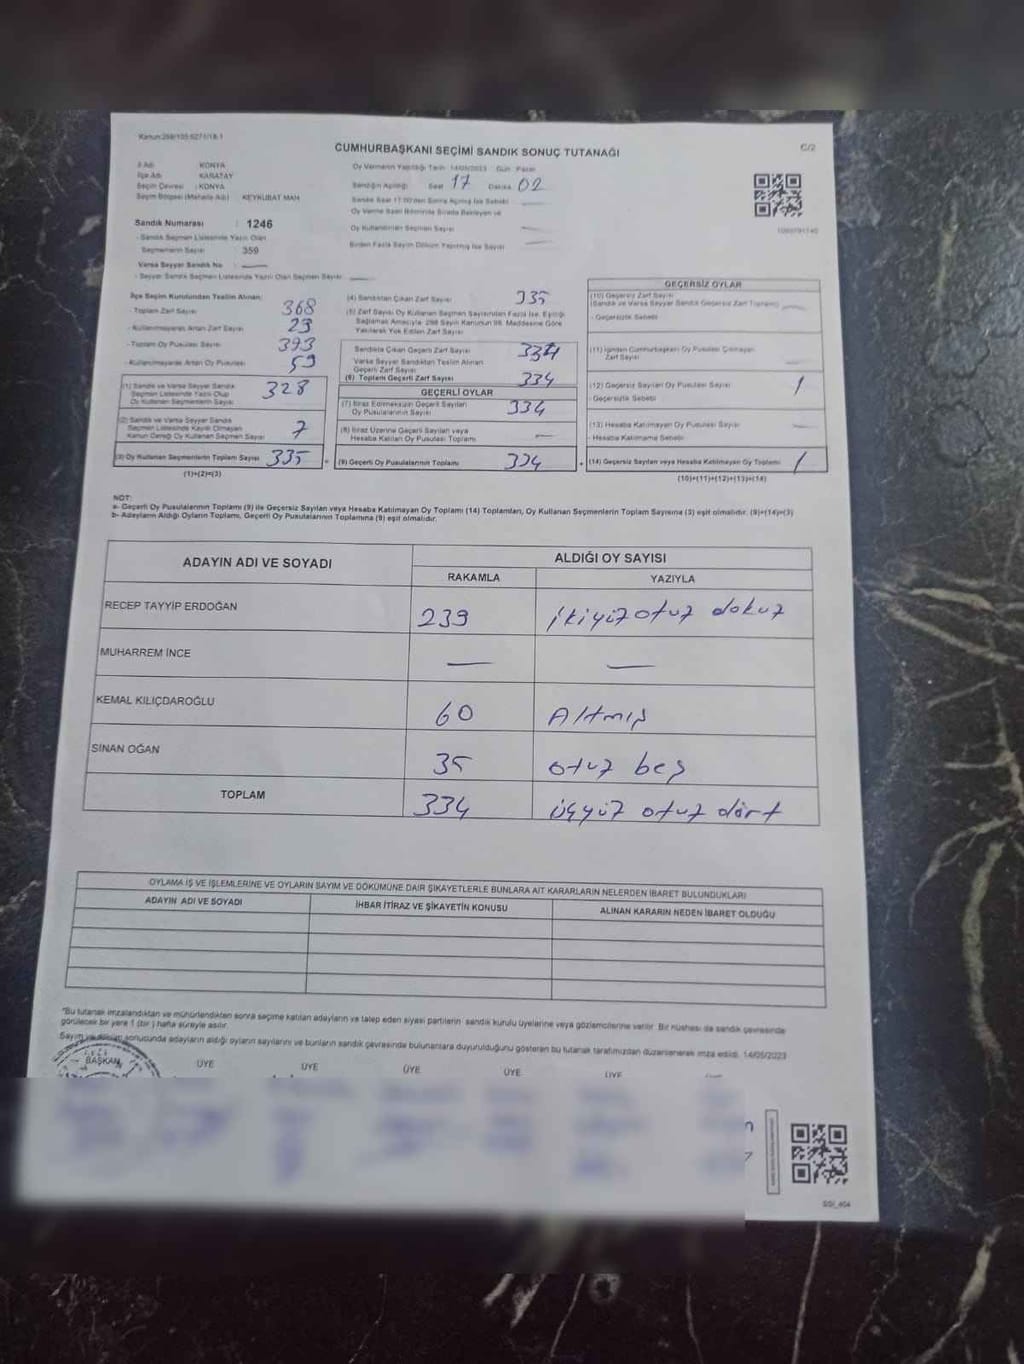 Kanun:298/105:6271/18.1
CUMHURBAŞKANI SEÇİMİ SANDIK SONUÇ TUTANAĞI
C/2
İl Adı KONYA
İlçe Adı KARATAY
Seçim Çevresi : KONYA
Seçim Bölgesi (Mahalle Adı) KEYKUBAT MAH
Oy Vermenin Yapıldığı Tarih 14/05/2023 Gün Pazar
Sandığın Açıldığı Saat 17 Dakika 02
Sandık Saat 17:00'den Sonra Açılmış İse Sebebi
Oy Verme Saati Bitiminde Sırada Bekleyen ve
Oy Kullandırılan Seçmen Sayısı
Birden Fazla Sayım Döküm Yapılmış İse Sayısı
Sandık Numarası : 1246
- Sandık Seçmen Listesinde Yazılı Olan
Seçmenlerin Sayısı 359
Varsa Seyyar Sandık No
- Seyyar Sandık Seçmen Listesinde Yazılı Olan Seçmen Sayısı
İlçe Seçim Kurulundan Teslim Alınan:
- Toplam Zarf Sayısı 368
- Kullanılmayarak Artan Zarf Sayısı 23
- Toplam Oy Pusulası Sayısı 393
- Kullanılmayarak Artan Oy Pusulası 59
(1) Sandık ve Varsa Seyyar Sandık
Seçmen Listesinde Yazılı Olup
Oy Kullanan Seçmenlerin Sayısı 328
(2) Sandık ve Varsa Seyyar Sandık
Seçmen Listesinde Kayıtlı Olmayan
Kanun Gereği Oy Kullanan Seçmen Sayısı 7
(3) Oy Kullanan Seçmenlerin Toplam Sayısı 335
(1)+(2)=(3)
(4) Sandıktan Çıkan Zarf Sayısı 335
(5) Zarf Sayısı Oy Kullanan Seçmen Sayısından Fazla İse, Eşitliği
Sağlamak Amacıyla, 298 Sayılı Kanunun 98. Maddesine Göre
Yakılarak Yok Edilen Zarf Sayısı
Sandıkta Çıkan Geçerli Zarf Sayısı 334
Varsa Seyyar Sandıktan Teslim Alınan
Geçerli Zarf Sayısı
(6) Toplam Geçerli Zarf Sayısı 334
GEÇERLİ OYLAR
(7) İtiraz Edilmeksizin Geçerli Sayılan
Oy Pusulalarının Sayısı 334
(8) İtiraz Üzerine Geçerli Sayılan veya
Hesaba Katılan Oy Pusulası Toplamı
(9) Geçerli Oy Pusulalarının Toplamı 334
GEÇERSİZ OYLAR
(10) Geçersiz Zarf Sayısı
(Sandık ve Varsa Seyyar Sandık Geçersiz Zarf Toplamı)
- Geçersizlik Sebebi
(11) İçinden Cumhurbaşkanı Oy Pusulası Çıkmayan
Zarf Sayısı
(12) Geçersiz Sayılan Oy Pusulası Sayısı 1
- Geçersizlik Sebebi
(13) Hesaba Katılmayan Oy Pusulası Sayısı
- Hesaba Katılmama Sebebi
(14) Geçersiz Sayılan veya Hesaba Katılmayan Oy Toplamı 1
(10)+(11)+(12)+(13)=(14)
NOT:
a- Geçerli Oy Pusulalarının Toplamı (9) ile Geçersiz Sayılan veya Hesaba Katılmayan Oy Toplamı (14) Toplamları, Oy Kullanan Seçmenlerin Toplam Sayısına (3) eşit olmalıdır. (9)+(14)=(3)
b- Adayların Aldığı Oyların Toplamı, Geçerli Oy Pusulalarının Toplamına (9) eşit olmalıdır.
ADAYIN ADI VE SOYADI
ALDIĞI OY SAYISI
RAKAMLA YAZIYLA
RECEP TAYYİP ERDOĞAN 239 ikiyüz otuz dokuz
MUHARREM İNCE
KEMAL KILIÇDAROĞLU 60 Altmış
SİNAN OĞAN 35 otuz beş
TOPLAM 334 üçyüz otuz dört
OYLAMA İŞ VE İŞLEMLERİNE VE OYLARIN SAYIM VE DÖKÜMÜNE DAİR ŞİKAYETLERLE BUNLARA AİT KARARLARIN NELERDEN İBARET BULUNDUKLARI
ADAYIN ADI VE SOYADI İHBAR İTİRAZ VE ŞİKAYETİN KONUSU ALINAN KARARIN NEDEN İBARET OLDUĞU
"Bu tutanak imzalandıktan ve mühürlendikten sonra seçime katılan adayların ve talep eden siyasi partilerin sandık kurulu üyelerine veya gözlemcilerine verilir. Bir nüshası da sandık çevresinde
görülecek bir yere 1 (bir) hafta süreyle asılır.
Sayım ve döküm sonucunda adayların aldığı oyların sayılarını ve bunların sandık çevresinde bulunanlara duyurulduğunu gösteren bu tutanak tarafımızdan düzenlenerek imza edildi. 14/05/2023
BAŞKAN ÜYE ÜYE ÜYE ÜYE ÜYE